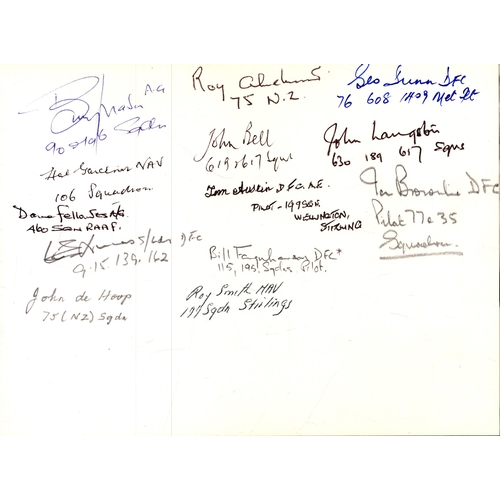 A.G
90 & 196 Sqdn
Hal Gardner NAV
106 Squadron
Dave Fellowes A/G
460 Sqn RAAF.
S/Ldr DFC
9. 15. 139. 162
John de Hoop
75 (NZ) Sqdn
Roy
75 N.Z.
John Bell
619 & 617 Sqns
Tom Austin D.F.C. A.E.
PILOT - 199 SQN
WELLINGTON,
STIRLING
Bill Farquharson DFC*
115, 195, Sqdns Pilot.
Roy Smith NAV
199 Sqdn Stirlings
Geo Dunn DFC
76 608 1409 Met Flt
John Langston
630 189 617 Sqns
DFC
Pilot 77 & 35
Squadron.